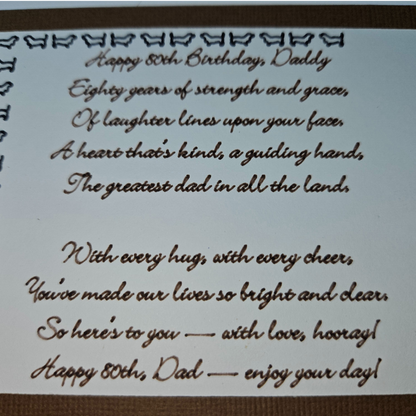 Happy 80th Birthday, Daddy
Eighty years of strength and grace,
Of laughter lines upon your face.
A heart that's kind, a guiding hand,
The greatest dad in all the land.
With every hug, with every cheer,
You've made our lives so bright and clear.
So here's to you — with love, hooray!
Happy 80th, Dad — enjoy your day!